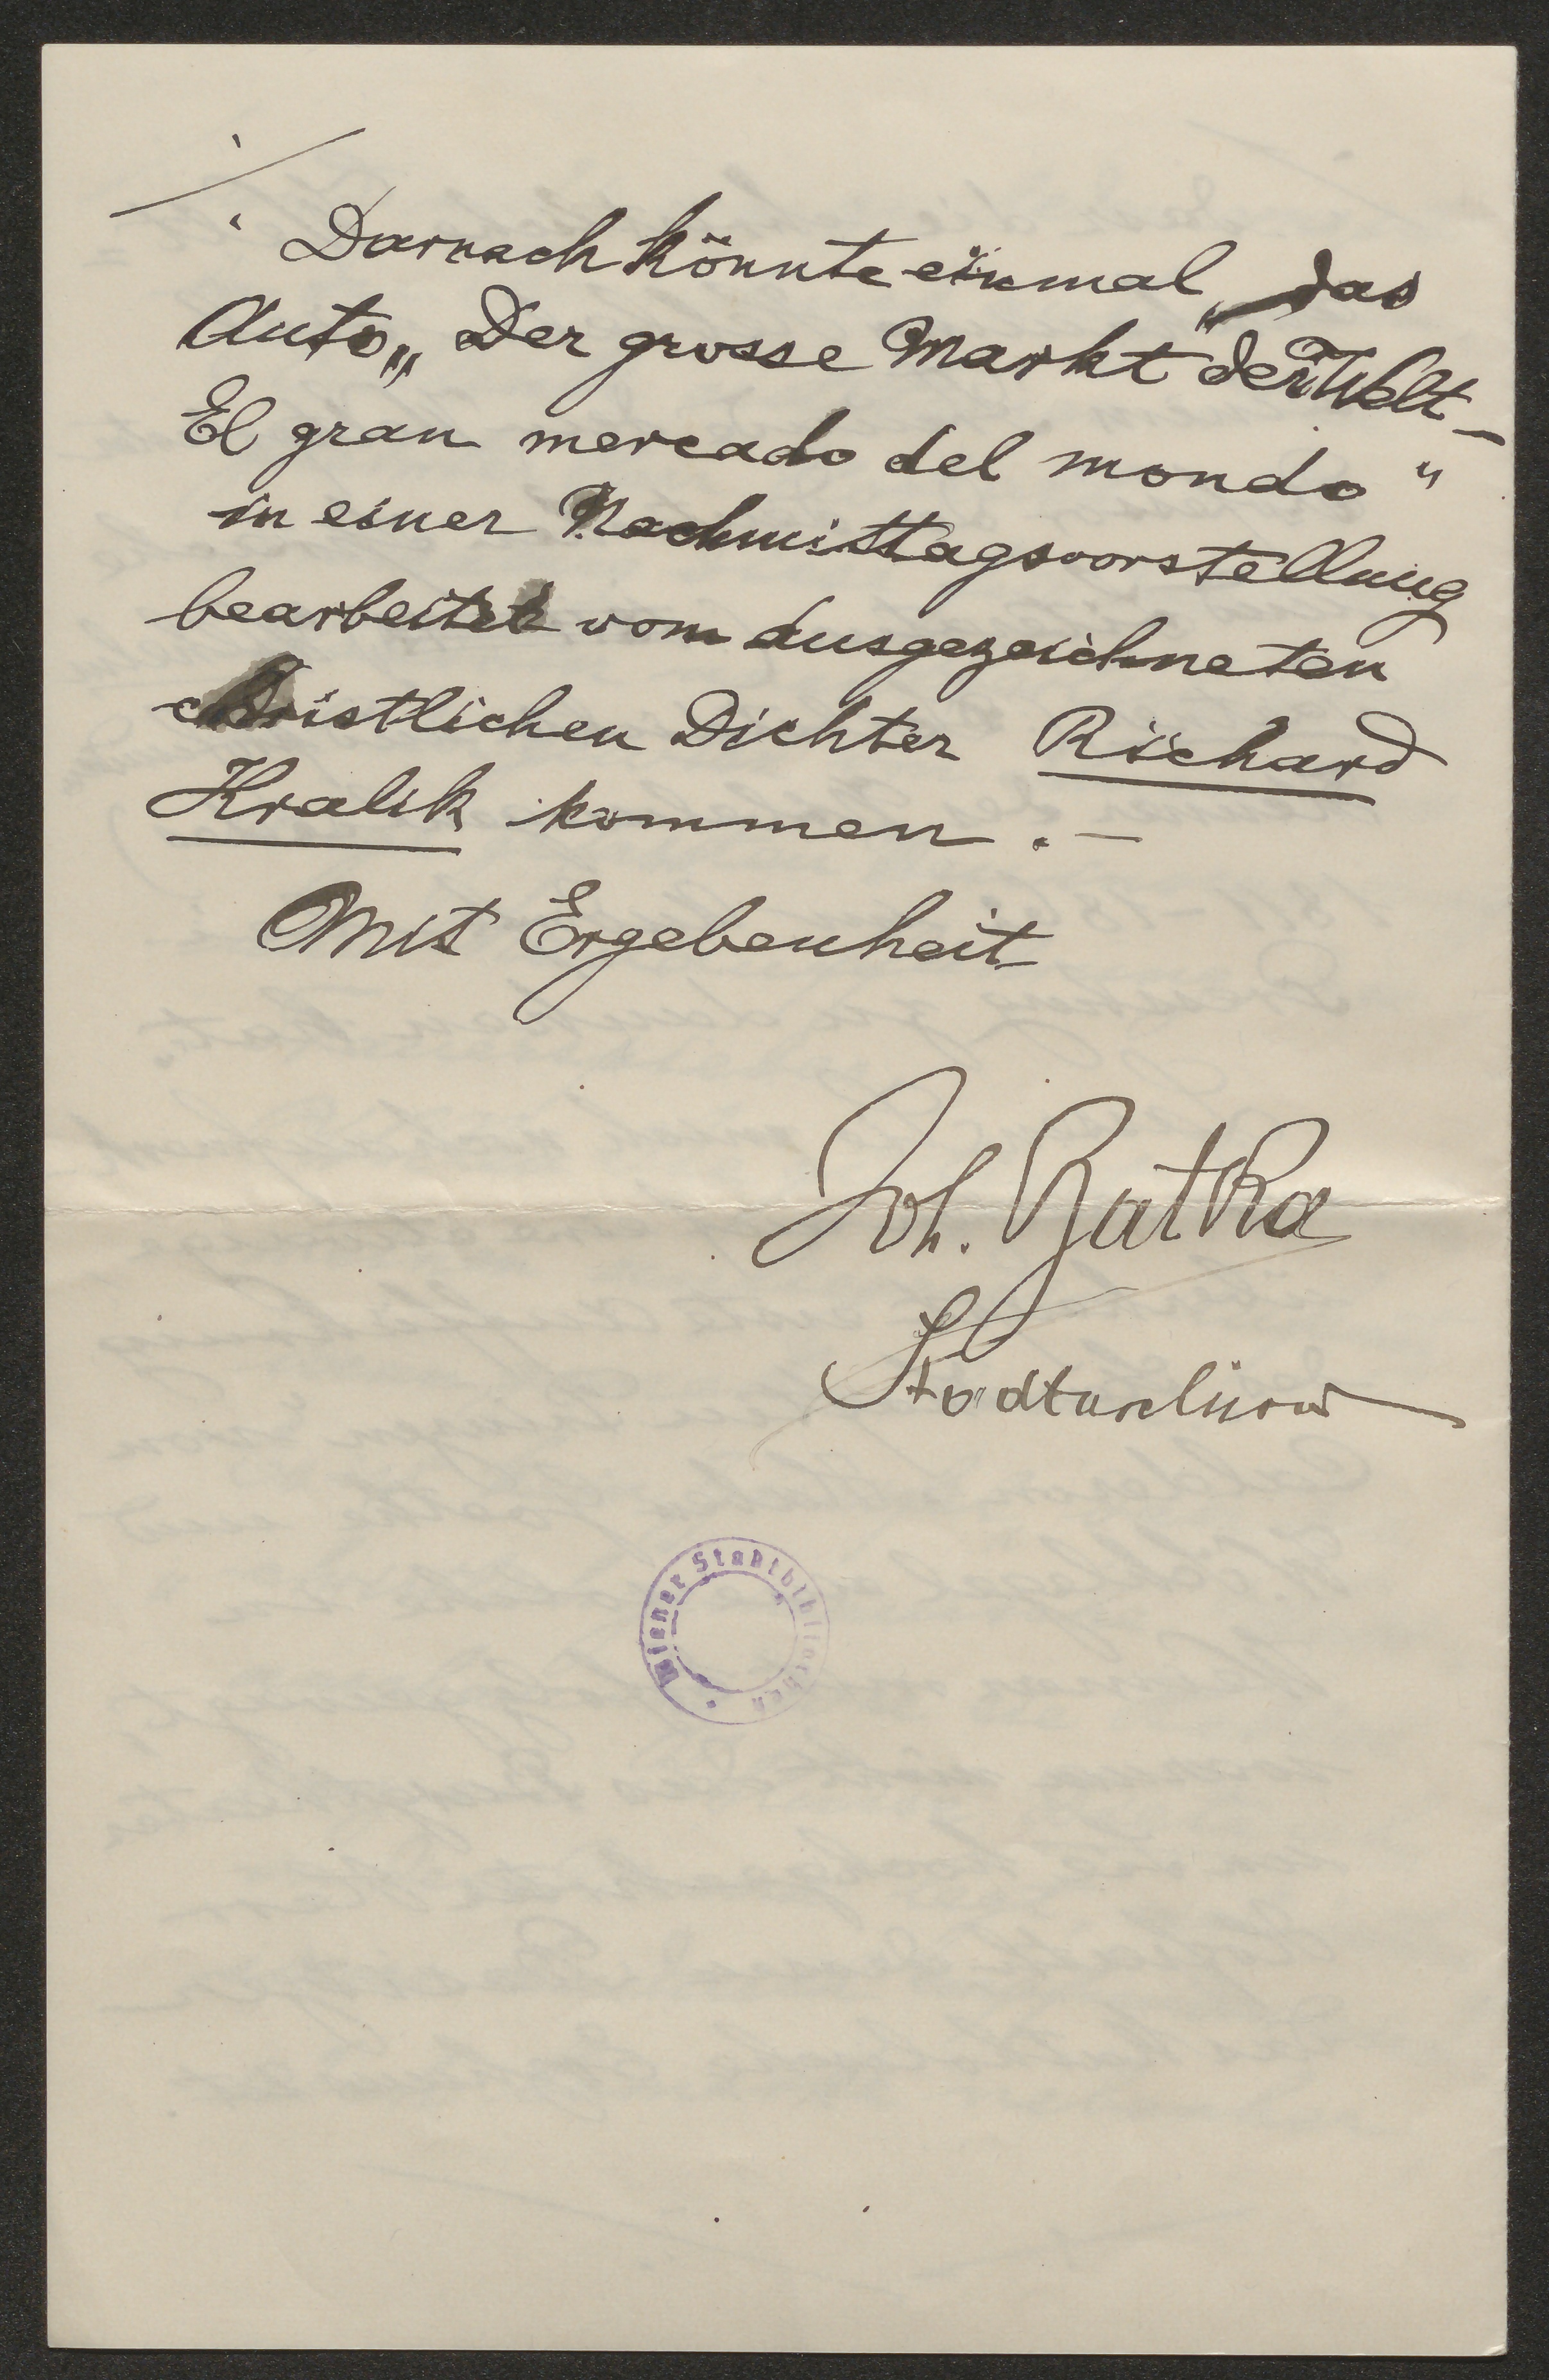 ./.
Darnach könnte einmal „das
Auto „Der grosse Markt der Welt –
El gran mercado del mondo"
in einer Nachmittagsvorstellung
bearbeitet vom ausgezeichneten
christlichen Dichter Richard
Kralik kommen. –
Mit Ergebenheit
Joh. Batka
Stadtarchivar
Wiener Stadtbibliothek